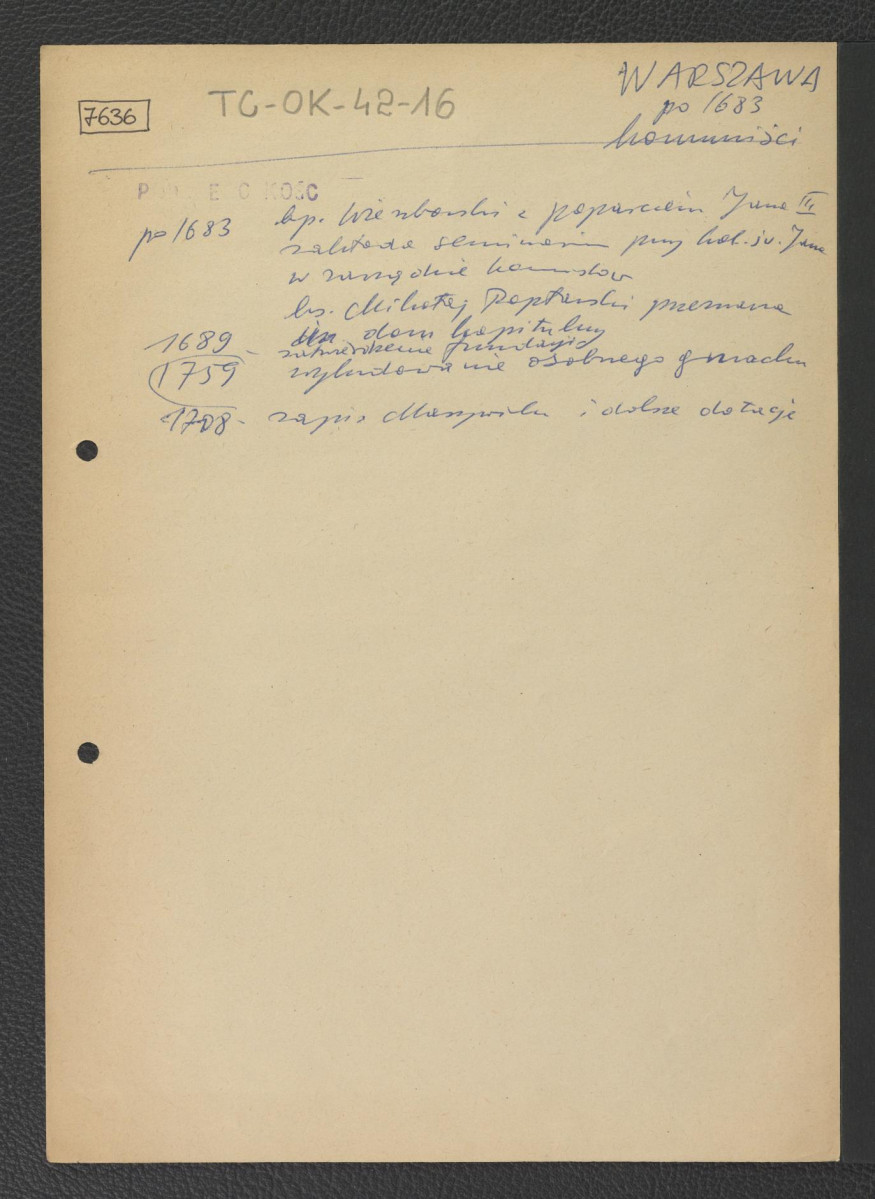 7636
TC-OK-42-16
WARSZAWA
po 1683
komuniści
po 1683 bp. Wierzbowski z poparciem Jana III
zakłada seminarium przy kol. św. Jana
w zarządzie komunistów
ks. Mikołaj Popławski przeznacza
dom kapitulny
1689 - zatwierdzenie fundacji
1759 wybudowanie osobnego gmachu
1708 - zapis i dalsze dotacje